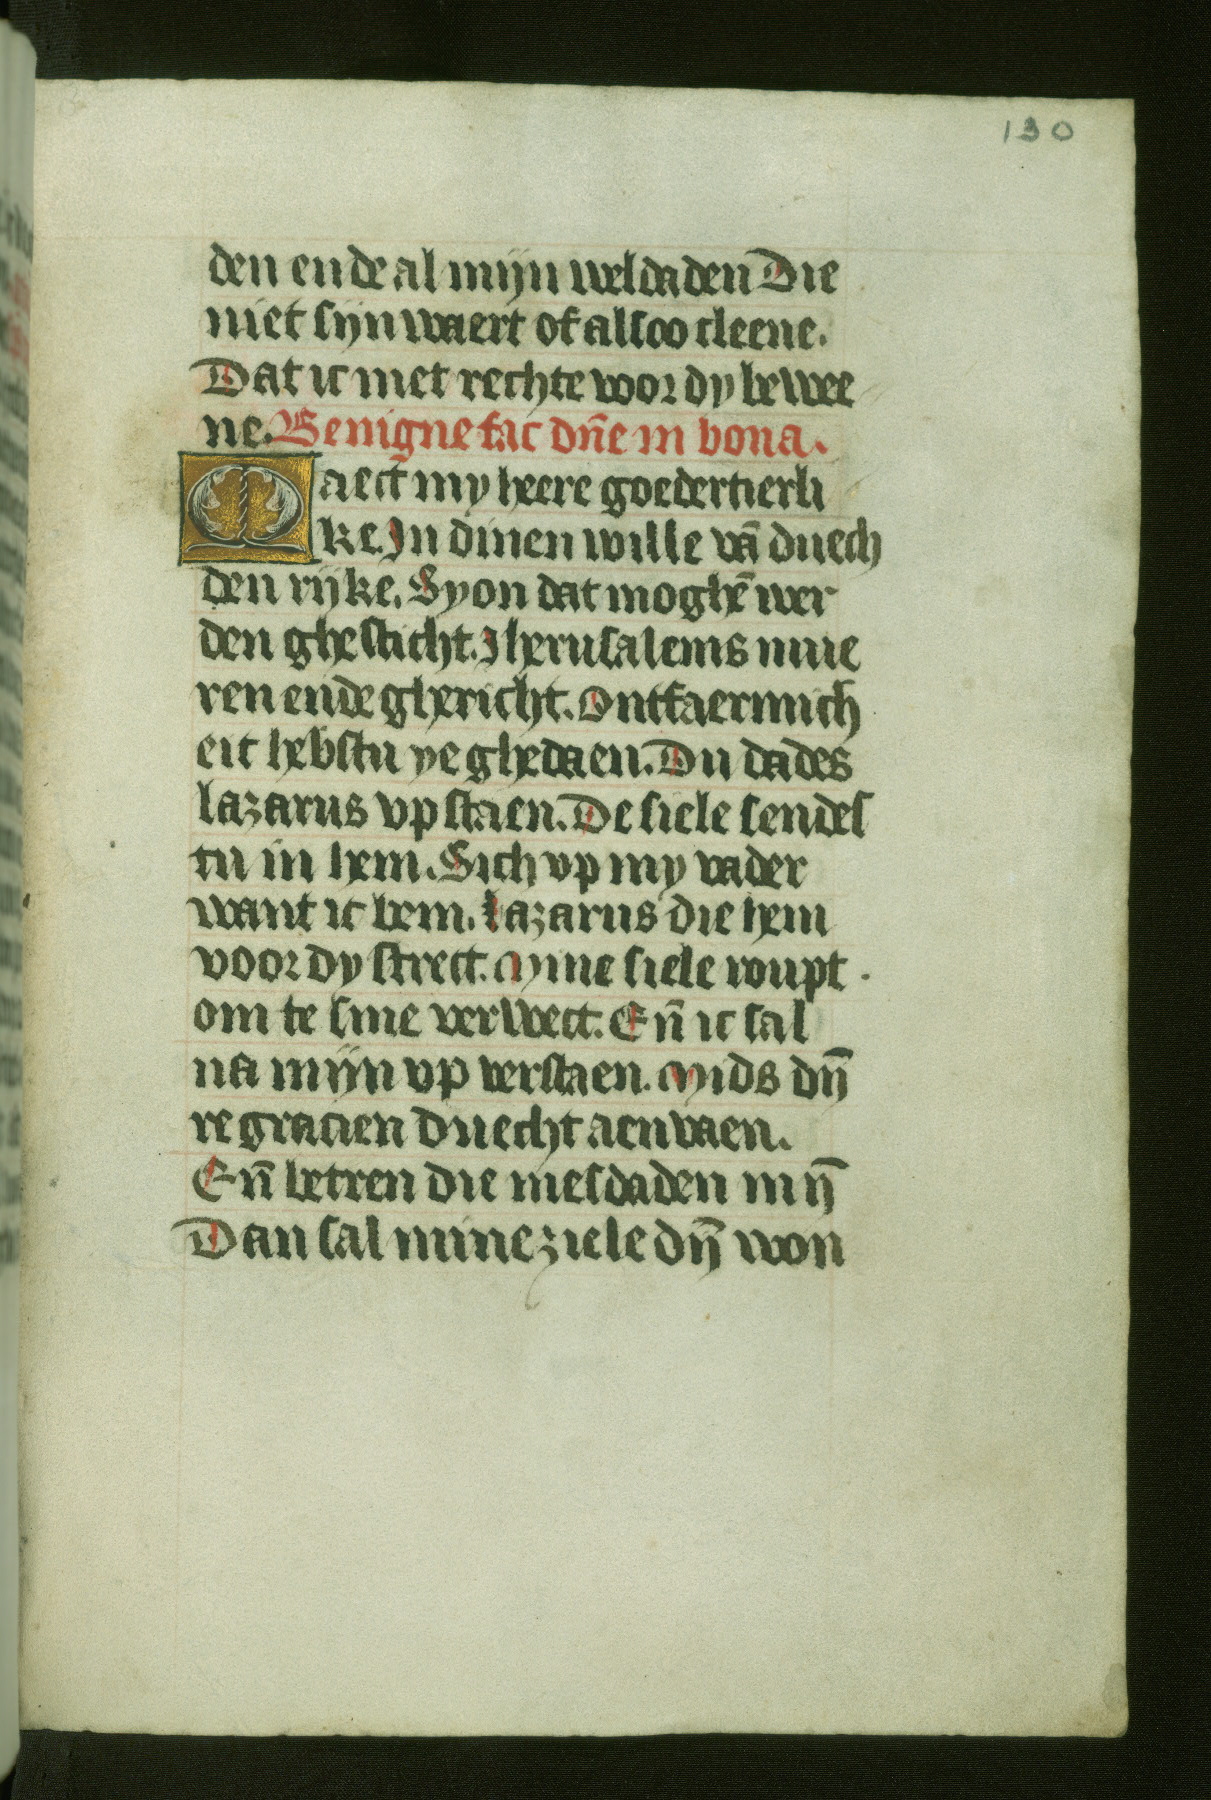 130
den ende al mijn weldaden Die
niet sijn waert of alsoo cleene.
Dat ic met rechte voor dy bewee
ne. Benigne fac dn̄e in bona.
Maect my heere goedertierli
ke. In dinen wille vā duech
den rijke. Syon dat moghē wer
den ghesticht. Jherusalems mue
ren ende ghericht. Ontfaermich
eit hebstu ye ghedaen. Du dades
lazarus vp staen. De siele sendes
tu in hem. Sich vp my vader
want ic bem. Lazarus die hem
voor dy strect. Mine siele roupt
om te sine verwect. En̄ ic sal
na mijn vp verstaen. Mids dȳ
re gracien duecht aenvaen.
En̄ betren die mesdaden mȳ
Dan sal mine ziele dȳ won